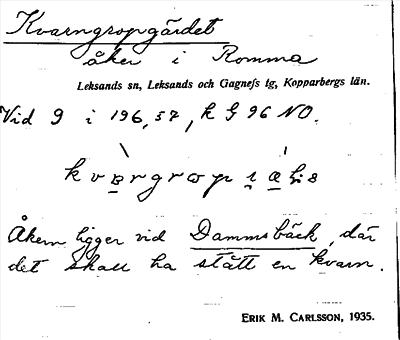 Kvarngropgärdet
åker i Romma
Leksands sn, Leksands och Gagnefs tg, Kopparbergs län.
Vid 9 i 196,57, k G 96 NO.
Åkern ligger vid Dammsbäck, där
det skall ha stått en kvarn.
ERIK M. CARLSSON, 1935.